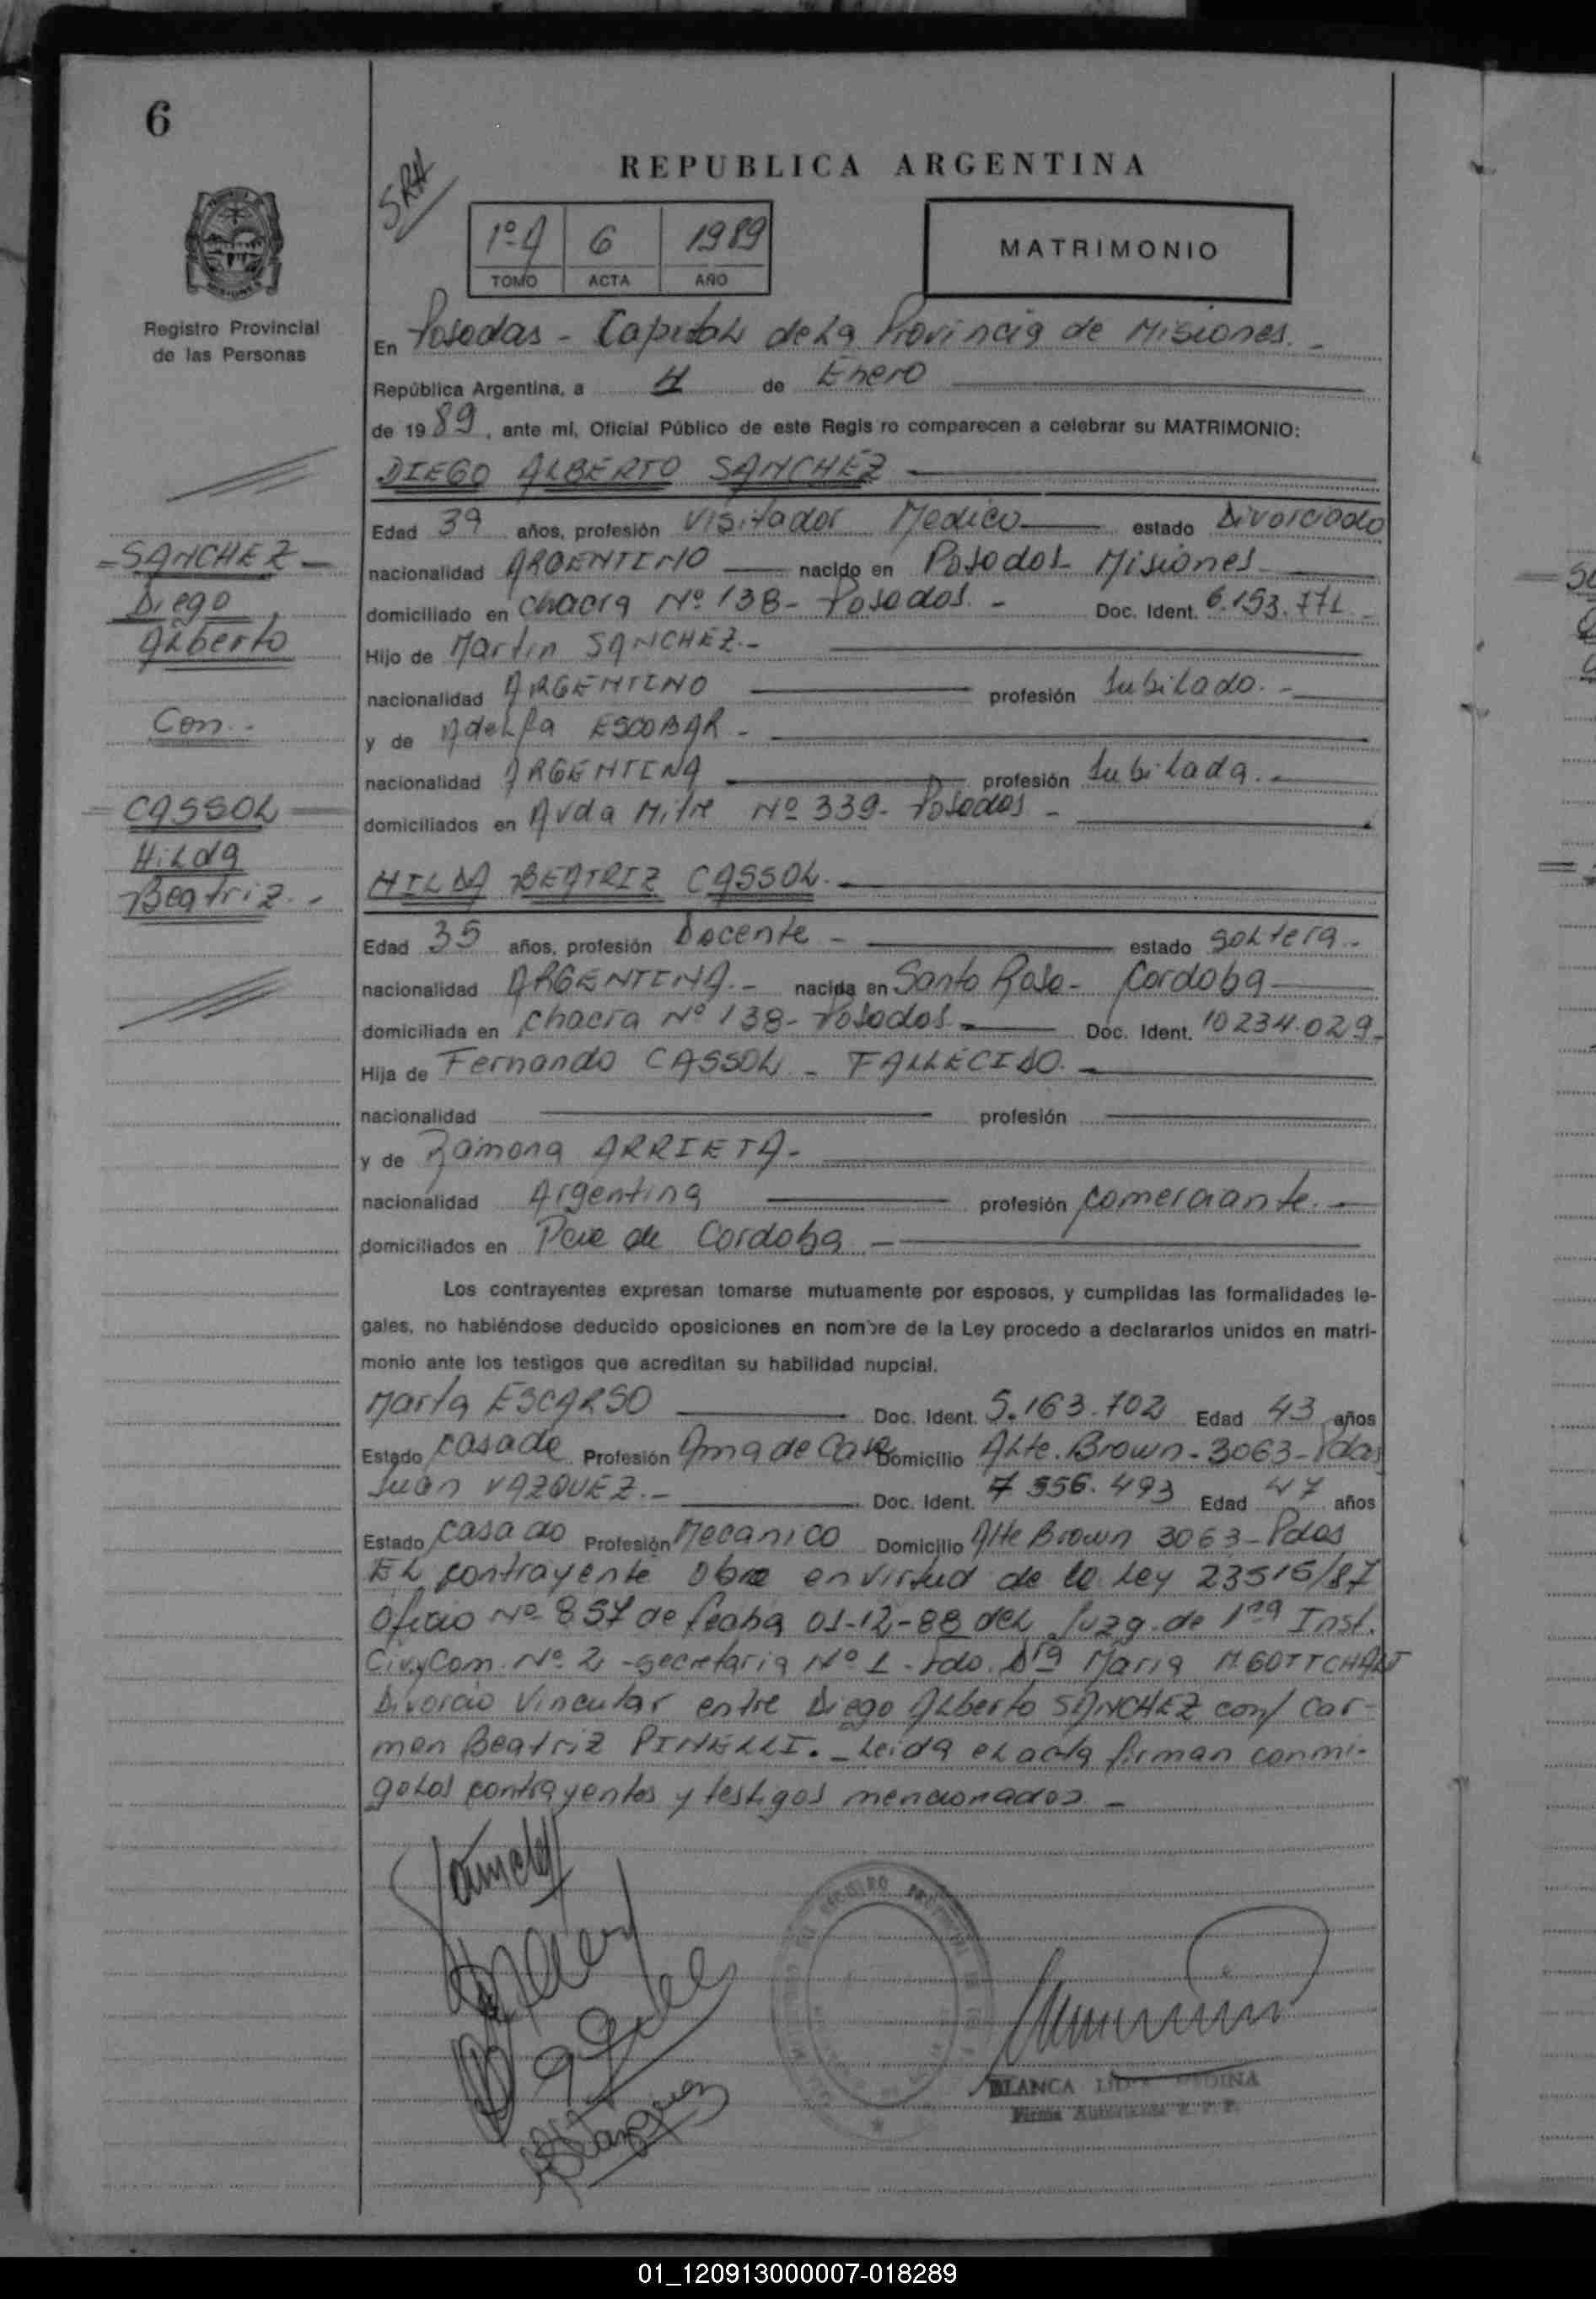 6
SRH
REPUBLICA ARGENTINA
1º A 6 1989
TOMO ACTA AÑO
MATRIMONIO
Registro Provincial
de las Personas
En Posadas - Capital de La Provincia de Misiones. -
República Argentina, a 4 de Enero
de 1989, ante mi, Oficial Público de este Regis ro comparecen a celebrar su MATRIMONIO:
DIEGO ALBERTO SANCHEZ
Edad 39 años, profesión Visitador Medico estado Divorciado
nacionalidad ARGENTINO nacido en Posadas Misiones
domiciliado en Chacra Nº 138 - Posadas. - Doc. Ident. 6.153.771 -
Hijo de Martin SANCHEZ. -
nacionalidad ARGENTINO profesión Jubilado. -
y de Adelfa ESCOBAR -
nacionalidad ARGENTINA profesión Jubilada. -
domiciliados en Avda Mitre Nº 339 - Posadas -
HILDA BEATRIZ CASSOL. -
Edad 35 años, profesión Docente - estado soltera -
nacionalidad ARGENTINA. - nacida en Santa Rosa - Cordoba
domiciliada en Chacra Nº 138 - Posadas. Doc. Ident. 10234.029 -
Hija de Fernando CASSOL - FALLECIDO. -
nacionalidad profesión
y de Ramona ARRIETA -
nacionalidad Argentina profesión comerciante. -
domiciliados en Pcia de Cordoba -
Los contrayentes expresan tomarse mutuamente por esposos, y cumplidas las formalidades le-
gales, no habiéndose deducido oposiciones en nombre de la Ley procedo a declararlos unidos en matri-
monio ante los testigos que acreditan su habilidad nupcial.
Marta ESCARSO Doc. Ident. 5.163.702 Edad 43 años
Estado casada Profesión Ama de Casa Domicilio Alte. Brown - 3063 - Pdas
Juan VAZQUEZ. - Doc. Ident. 7 556.493 Edad 47 años
Estado casado Profesión Mecanico Domicilio Alte Brown 3063 - Pdas
EL contrayente obra en virtud de la Ley 23515/87
Oficio Nº 857 de fecha 01-12-88 del Juzg. de 1ra Inst.
Civ.y Com. Nº 2 - secretaria Nº 1 - Fdo. Dra Maria M. GOTTCHALT
Divorcio Vincular entre Diego Alberto SANCHEZ con/ Car-
men Beatriz PINELLI. - Leida el acta firman conmi-
go los contrayentes y testigos mencionados -
= SANCHEZ -
Diego
Alberto
Con. -
= CASSOL =
Hilda
Beatriz. -
BLANCA MEDINA
Firma Autorizada R. P. P.
01_120913000007-018289